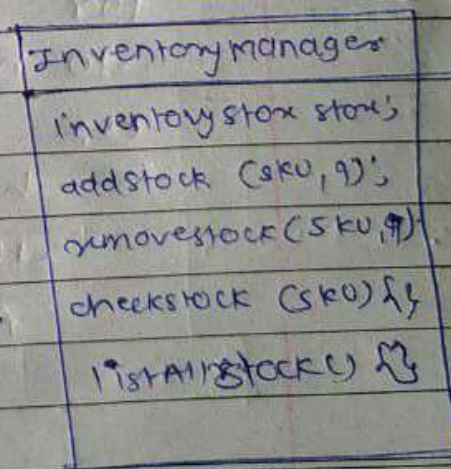 Inventorymanager
inventorystore store;
addstock (sku, q);
removestock (sku, q)
checkstock (sku) {}
listAllstock() {}